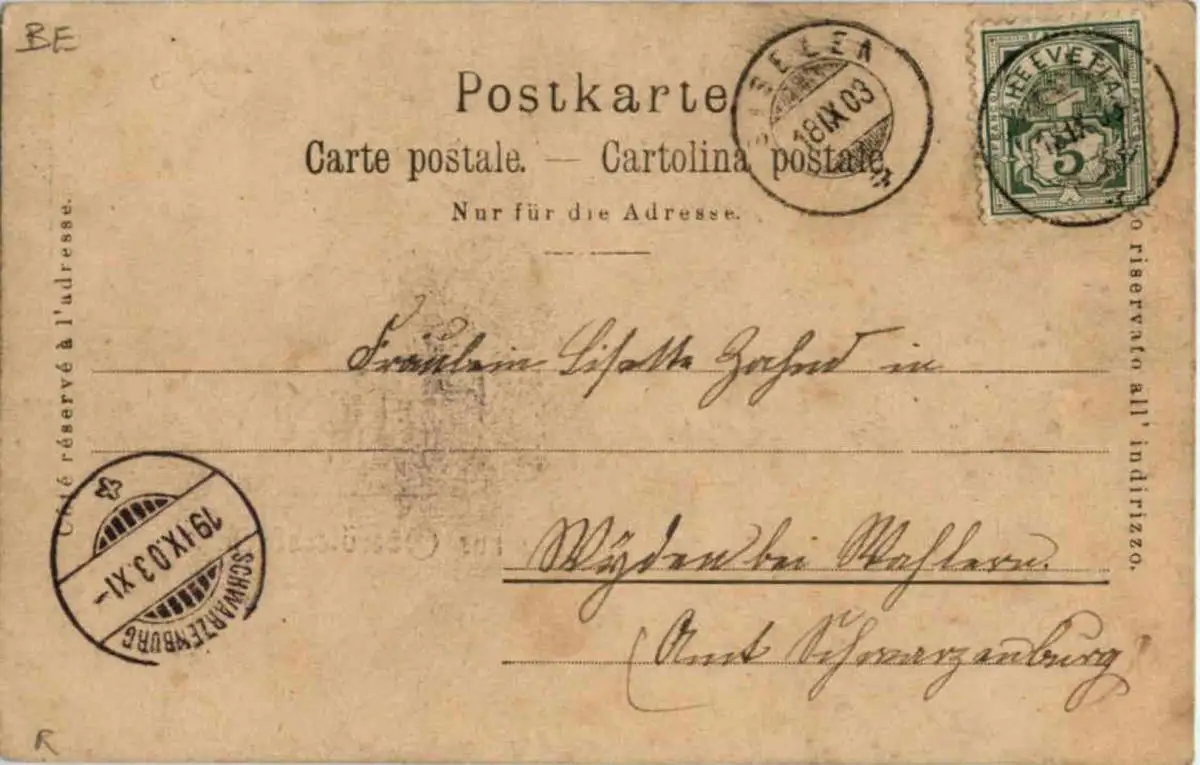 BE
Postkarte
Carte postale. — Cartolina postale.
Nur für die Adresse.
SISELEN
18 IX 03
HELVETIA
5
Côté réservé à l'adresse.
riservato all' indirizzo.
Fräulein Lisette Zahnd in
Wyden bei Wahlern.
(Amt Schwarzenburg
19.IX.03.XI–
SCHWARZENBURG
R